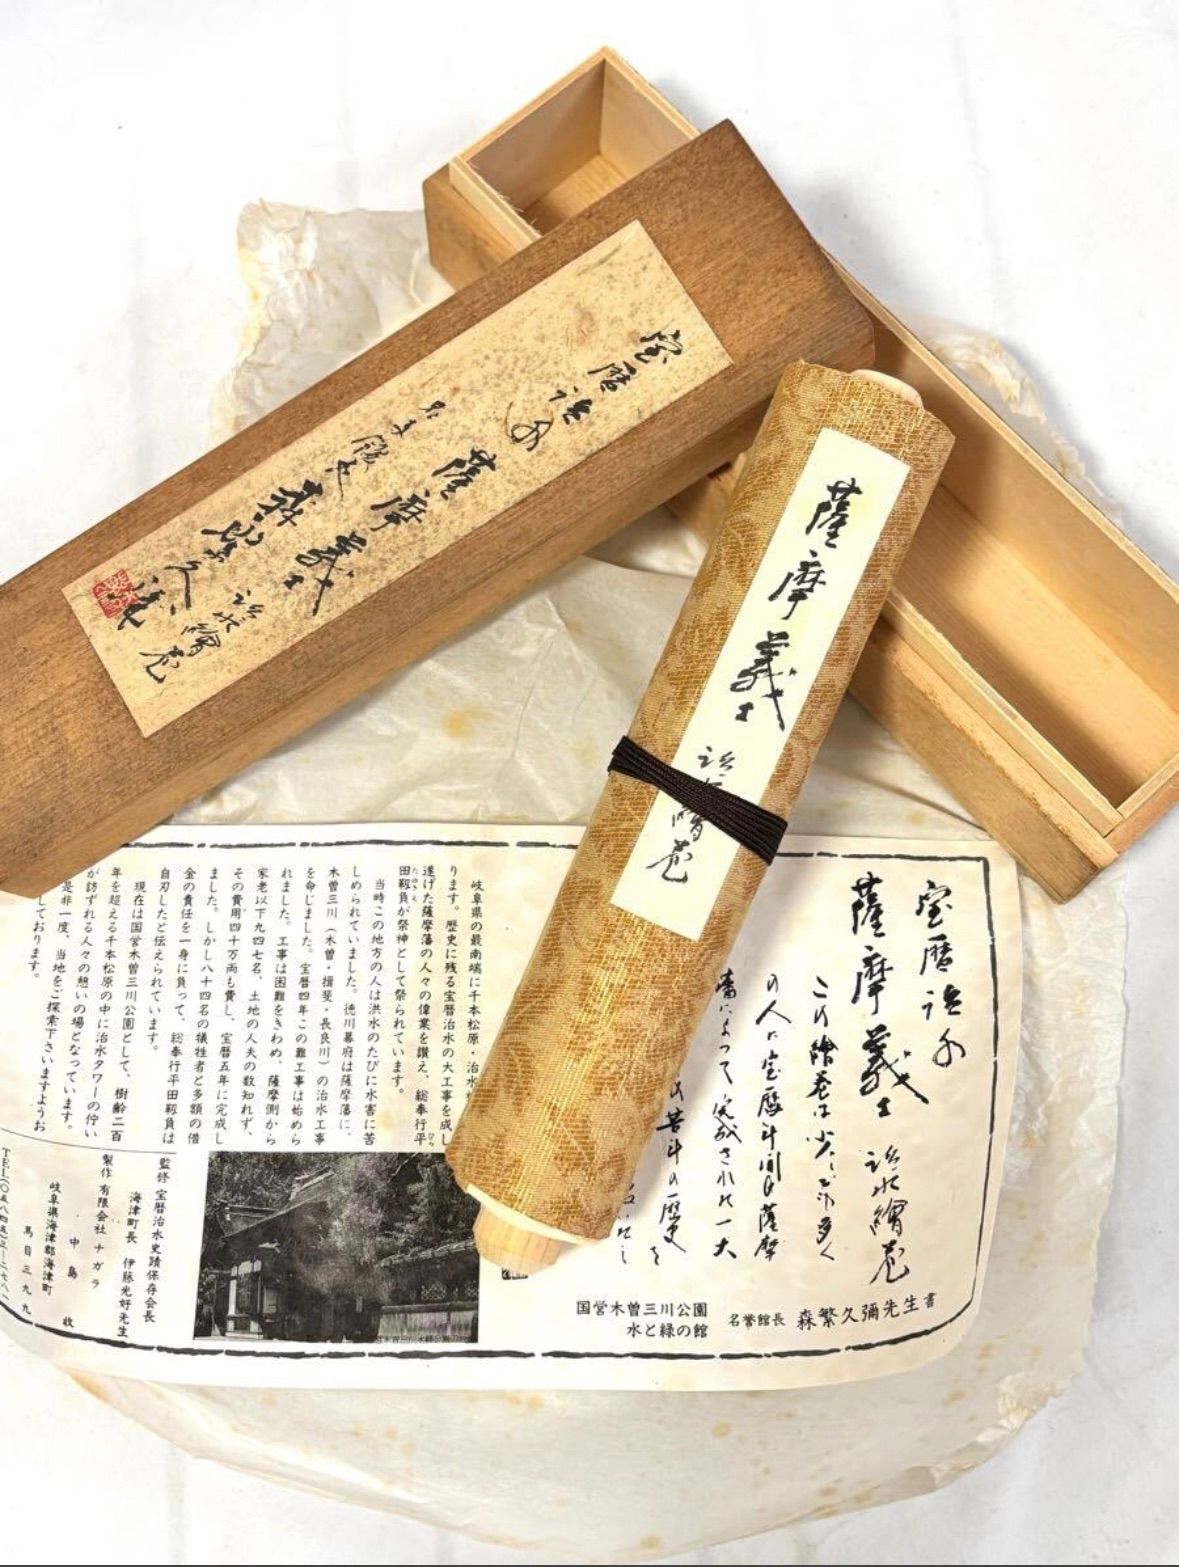 宝暦治水
薩摩義士
治水繪巻
名誉館長
森繁久彌
薩摩義士
治 繪巻
宝暦治水
薩摩義士 治水繪巻
この繪巻は少しでも多く
の人に宝暦年間の薩摩
によって完成された一大
の苦斗の歴史を
森繁久彌先生書
名誉館長
国営木曽三川公園
水と緑の館
岐阜県の最南端に千本松原・治水
ります。歴史に残る宝暦治水の大工事を成し
遂げた薩摩藩の人々の偉業を讃え、総奉行平
田靱負が祭神として祭られています。
当時この地方の人は洪水のたびに水害に苦
しめられていました。徳川幕府は薩摩藩に、
木曽三川（木曽・揖斐・長良川）の治水工事
を命じました。宝暦四年この難工事は始めら
れました。工事は困難をきわめ、薩摩側から
家老以下九四七名、土地の人夫の数知れず、
その費用四十万両も費し、宝暦五年に完成し
ました。しかし八十四名の犠牲者と多額の借
金の責任を一身に負って、総奉行平田靱負は
自刃したと伝えられています。
現在は国営木曽三川公園として、樹齢二百
年を超える千本松原の中に治水タワーの佇い
が訪ずれる人々の憩いの場となっています。
是非一度、当地をご探索下さいますようお
しております。
監修 宝暦治水史蹟保存会長
海津町長 伊藤光好先生
製作 有限会社 ナガラ
中島 收
岐阜県海津郡海津町
馬目三九九
TEL(〇五八四五)三-二七八一